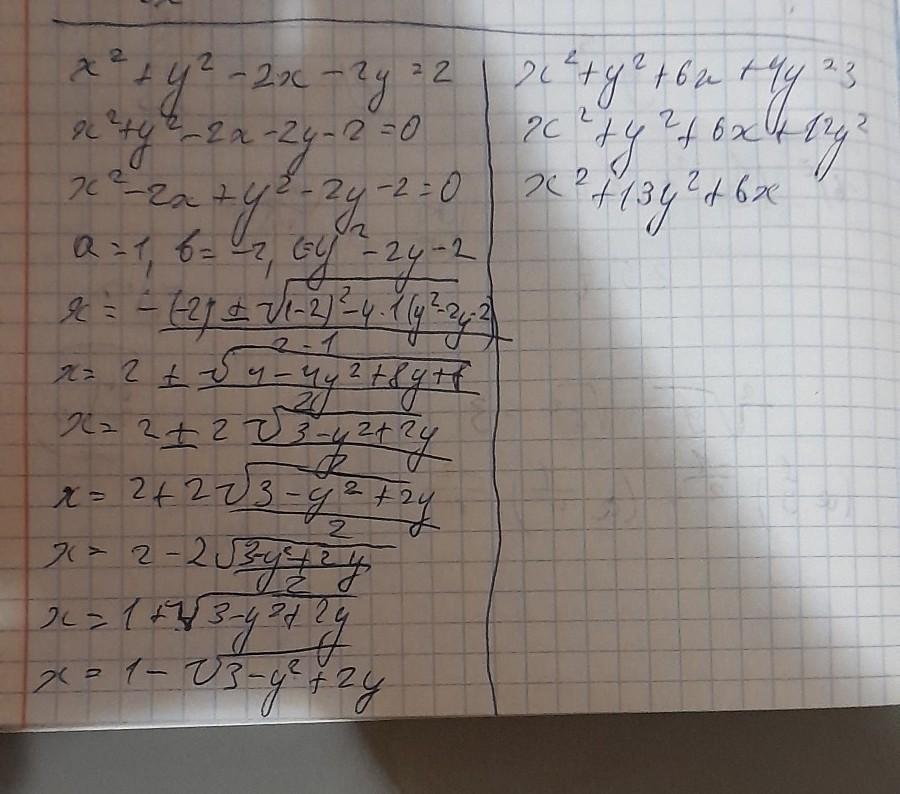 x² + y² - 2x - 2y = 2
x²+y²-2x-2y-2=0
x²-2x+y²-2y-2=0
a=1, b=-2, c=y²-2y-2
x = -(-2) ± √(-2)²-4·1(y²-2y-2) / 2·1
x = 2 ± √4-4y²+8y+8 / 2
x = 2 ± 2√3-y²+2y / 2
x = 2+2√3-y²+2y / 2
x = 2-2√3-y²+2y / 2
x = 1+√3-y²+2y
x = 1-√3-y²+2y
x²+y²+6x+4y=3
x²+y²+6x+12y²
x²+13y²+6x